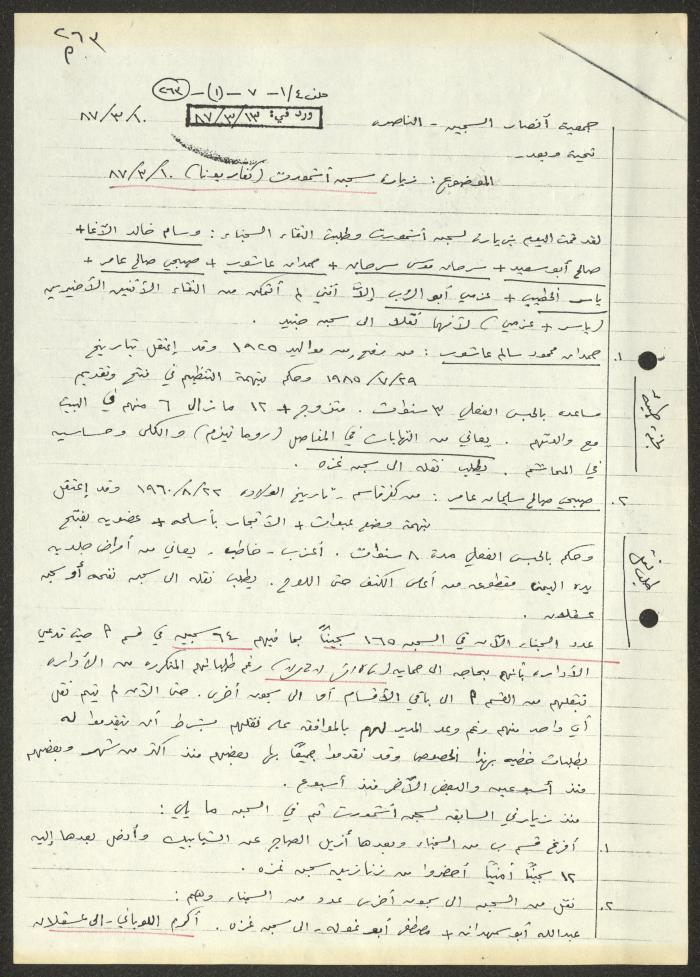 ٢٦٣
م.
ملف ١/٤ - ٧ - (١) - (٢٦٣)
ورد في: ٨٧/٣/١٣
٨٧/٣/١٠
جمعية أنصار السجين - الناصره
تحية وبعد -
الموضوع: زيارة سجن أشمورت (كفار يونا) ٨٧/٣/١٠
لقد قمت اليوم بزيارة لسجن أشمورت وطلبت التقاء السجناء: وسام خالد الأغا +
صالح أبو سعيد + سرحان سرحان + حمدان عاشور + صبحي صالح عامر +
ياسر الخطيب + عزمي أبو الرب إلا أنني لم أتمكن من التقاء الأثنين الأخيرين
(ياسر + عزمي) لأنهما نقلا الى سجن جنيد.
١. حمدان محمود سالم عاشور: من رفح من مواليد ١٩٢٥ وقد إعتقل بتاريخ
٢٩/٧/١٩٨٥ وحكم بتهمة التنظيم في فتح وتقديم
مساعده بالحبس الفعلي ٣ سنوات. متزوج + ١٢ ما زال ٦ منهم في البيت
مع والدتهم. يعاني من التهابات في المفاصل (روماتيزم) والكلى وحساسيه
في. يطلب نقله الى سجن غزه.
٢. صبحي صالح سليمان عامر: من كفر قاسم - تاريخ الولاده ٢٢/٨/١٩٦٠ وقد إعتقل
بتهمة وضع عبوات + الأتجار بأسلحه + عضويه بفتح
وحكم بالحبس الفعلي مدة ٨ سنوات. أعزب - خاطب. يعاني من أمراض جلديه
يده اليمنى مقطوعه من أعلى الكتف حتى اللوح. يطلب نقله الى سجن نفحه أو سجن
عسقلان.
طلب نقل
عدد السجناء الآن في السجن ١٦٥ سجيناً بما فيهم ٦٤ سجين في قسم م حيث تدعي
الأداره بأنهم بحاجه الى حمايه رغم طلباتهم المتكرره من الأداره
بنقلهم من القسم م الى باقي الأقسام أو الى سجون أخرى. حتى الآن لم يتم نقل
أي واحد منهم رغم وعد المدير لهم بالموافقه على نقلهم بشرط أن يتقدموا له
بطلبات خطيه بهذا الخصوص وقد تقدموا جميعاً بها بعضهم منذ أكثر من شهر وبعضهم
منذ أسبوعين والبعض الآخر منذ أسبوع.
منذ زيارتي السابقه لسجن أشمورت تم في السجن ما يلي:
١. أفرغ قسم ب من السجناء وبعدها أزيل الصاج عن الشبابيك وأدخل بعدها إليه
١٢ سجيناً أمنياً أحضروا من زنازين سجن غزه.
٢. نقل من السجن الى سجون أخرى عدد من السجناء وهم:
عبدالله أبو سمهدانه + مصطفى أبو غوله - الى سجن غزه. أكرم اللوباني - الى عسقلان